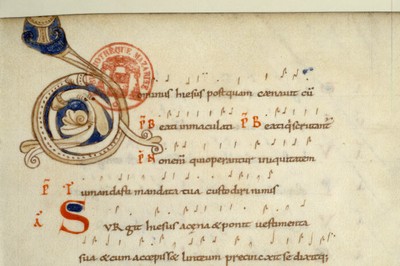 OTHÈQUE MAZARINE
Dominus hiesus postquam caenauit cū
P̄ Beati inmaculati P̄ Beati q̄ scrutant̄
P̄ Non em̄ qui operantur iniquitatem
P̄ Tu mandasti mandata tua custodiri nimis
A SURgit hiesus a cena & ponit uestimenta
sua & cum accepiss& linteum precinxit se